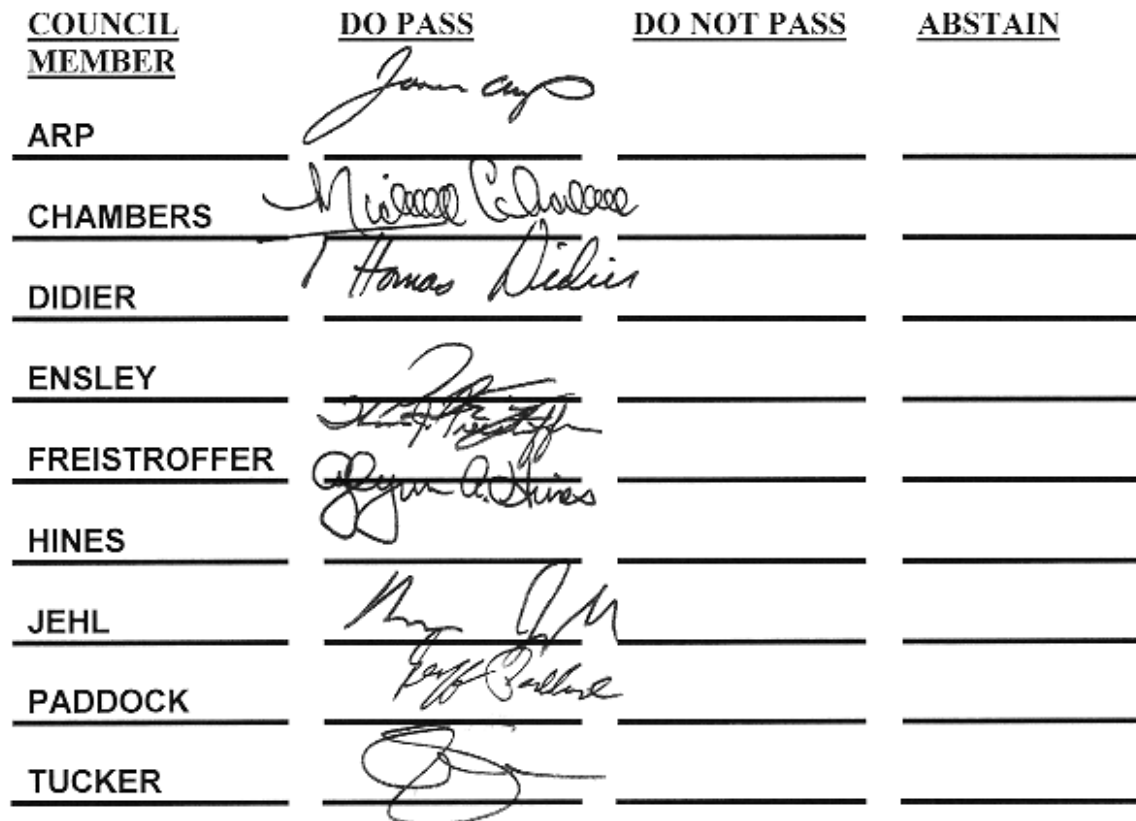 COUNCIL MEMBER DO PASS DO NOT PASS ABSTAIN
ARP James Arp
CHAMBERS Michelle Chambers
DIDIER Thomas Didier
ENSLEY
FREISTROFFER Freistroffer
HINES Glynn A. Hines
JEHL Jehl
PADDOCK Geoff Paddock
TUCKER